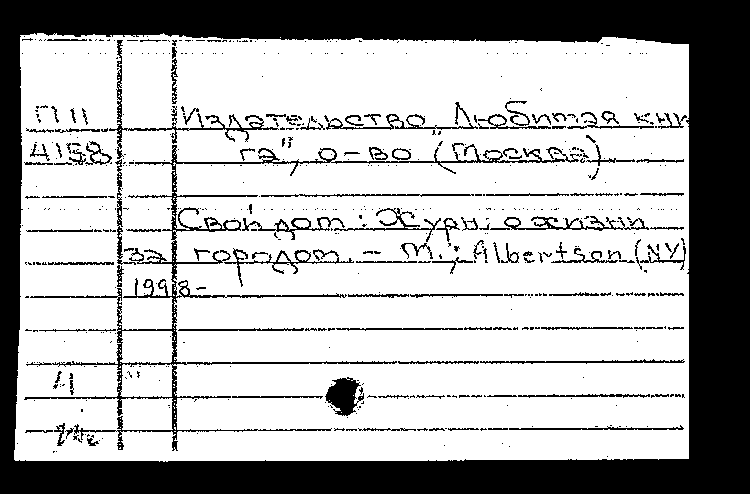 П 11 Издательство „Любимая кни
4158 га", о-во (Москва)
Свой дом : Журн. о жизни
за городом. - М. ; Albertson (NY)
1998-
Ч "